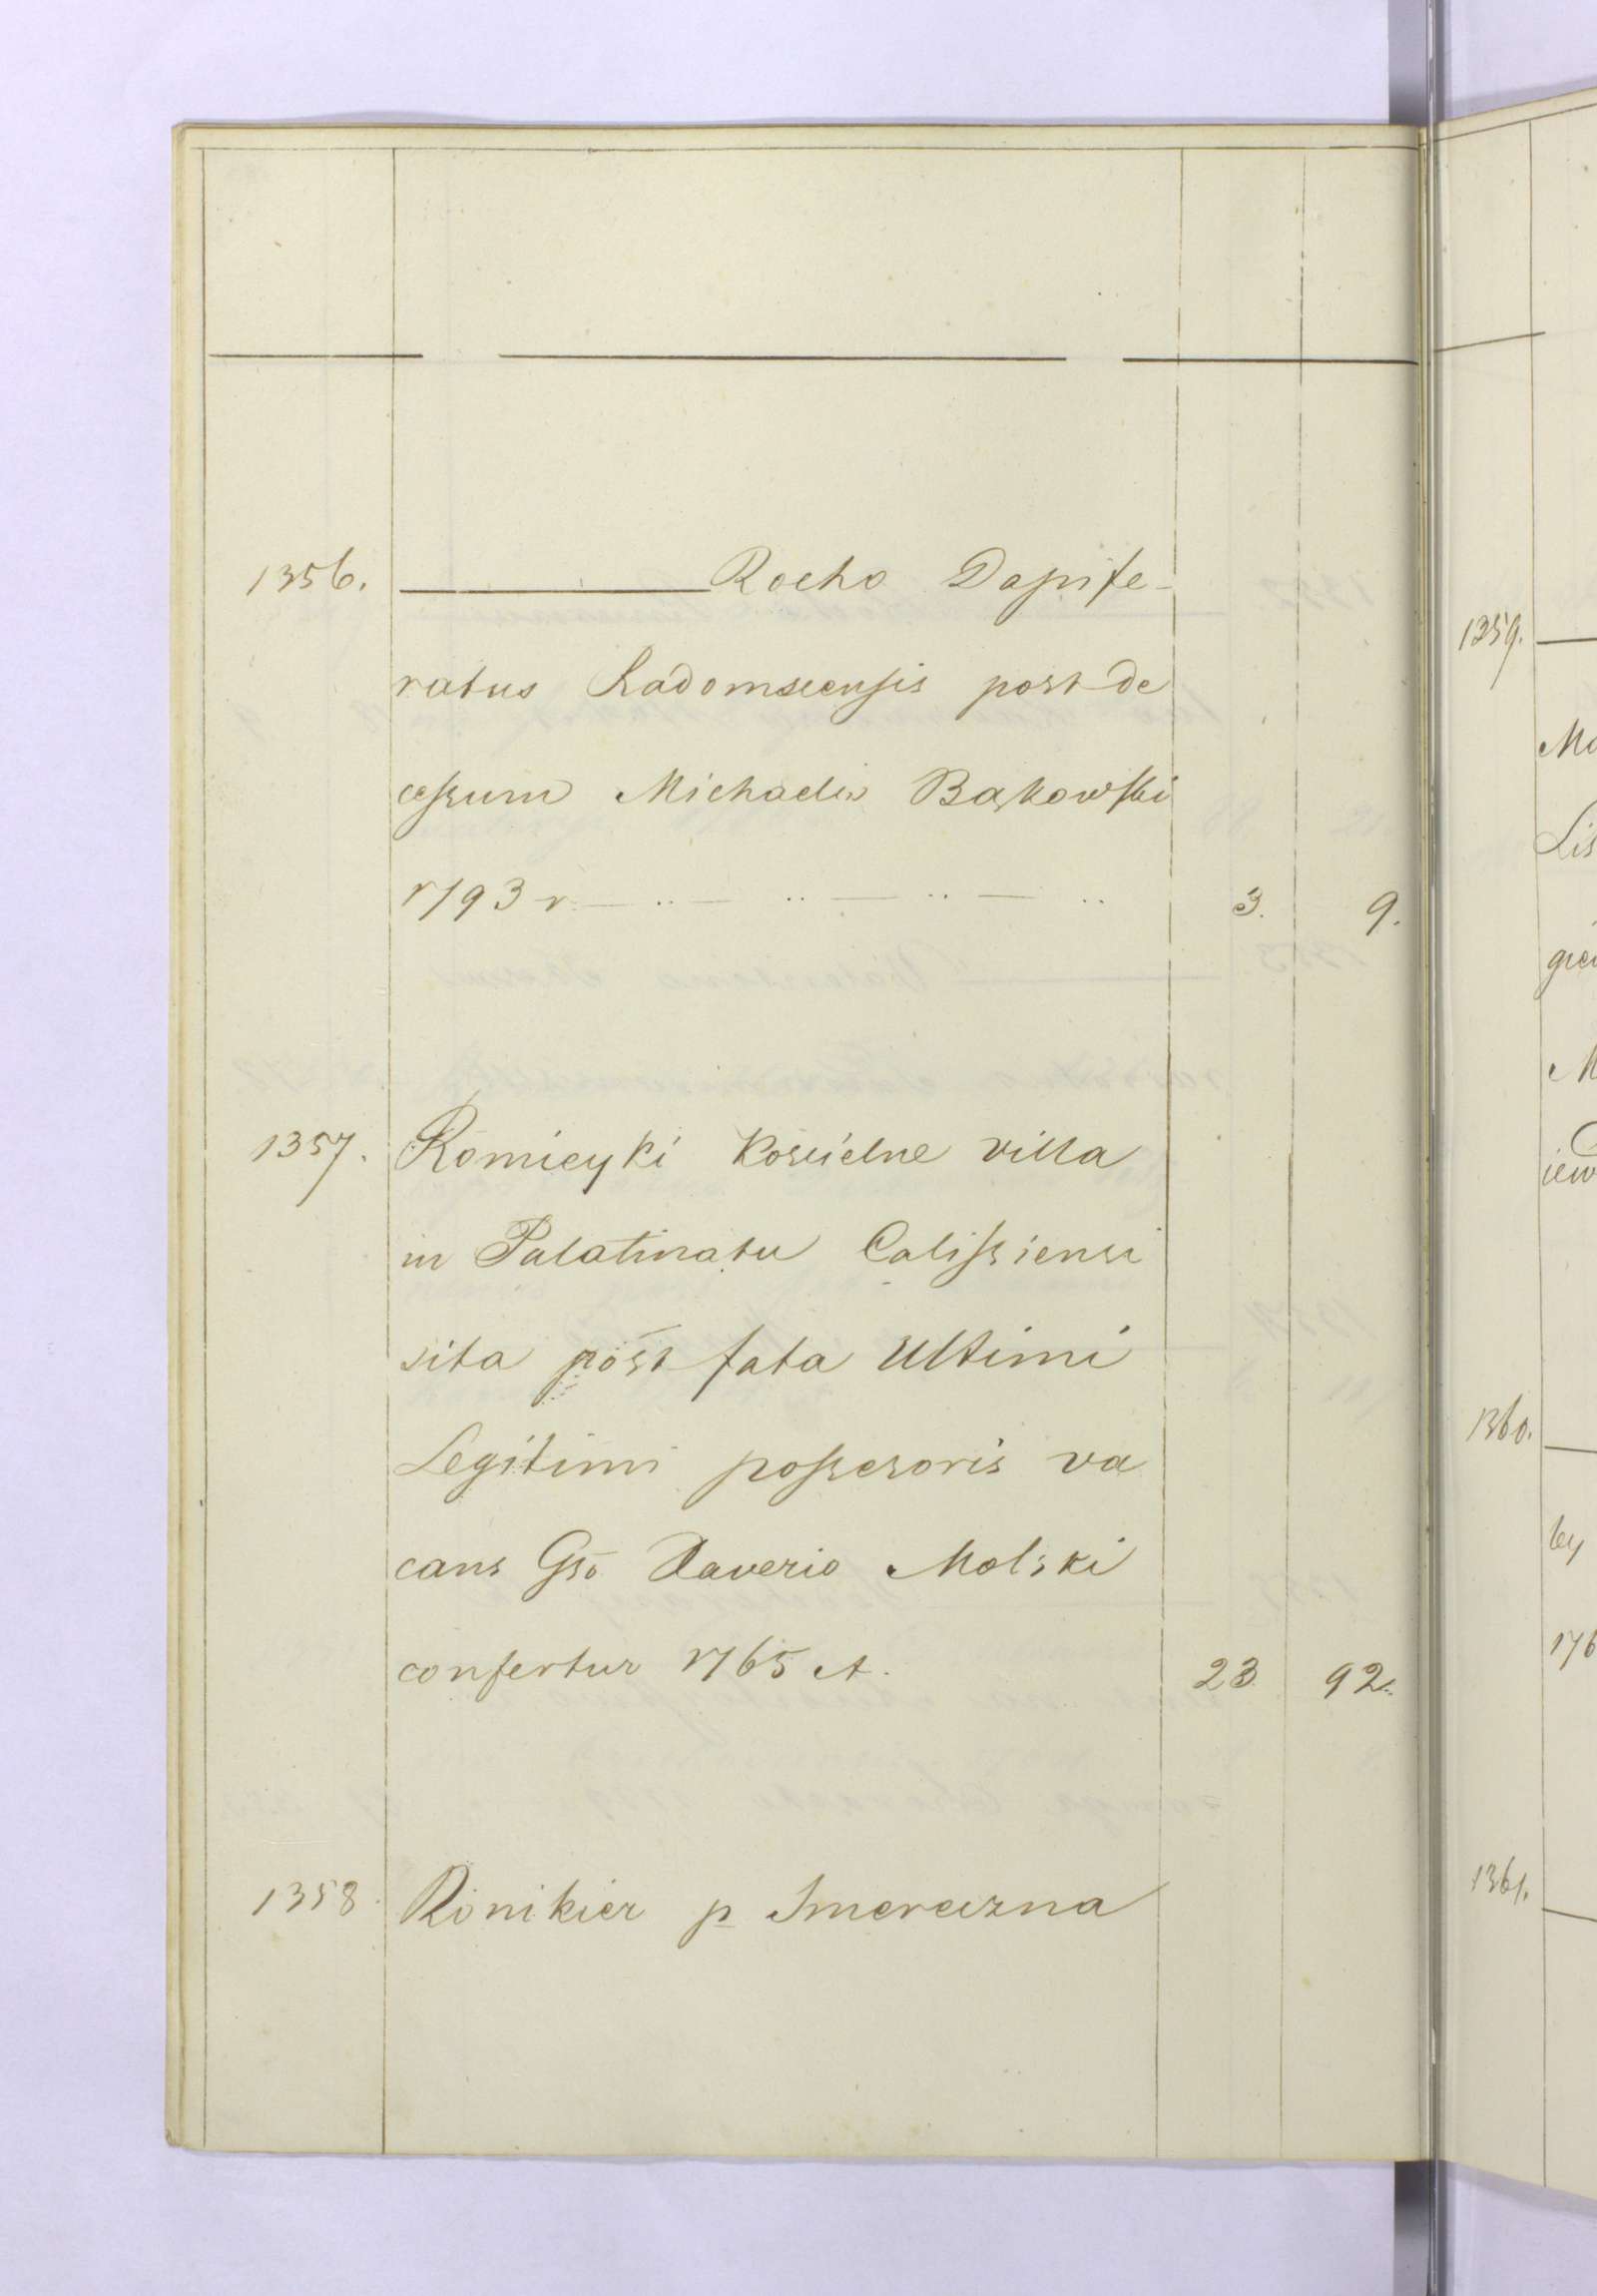 1356. ——— Rocho Dapife-
ratus Radomscensis post de
cessum Michaelis Bąkowski
1793 r — .. — .. — .. — .. 3. 9.
1357. Romieyki Koscielne villa
in Palatinatu Calissiensi
sita post fata Ultimi
Legitimi possesoris va
cans Gso Xaverio Molski
confertur 1765 A. 23 92.
1358 Ronikier p
1359.
Ma
Lis
M
iew
1360.
ley
176
1361.